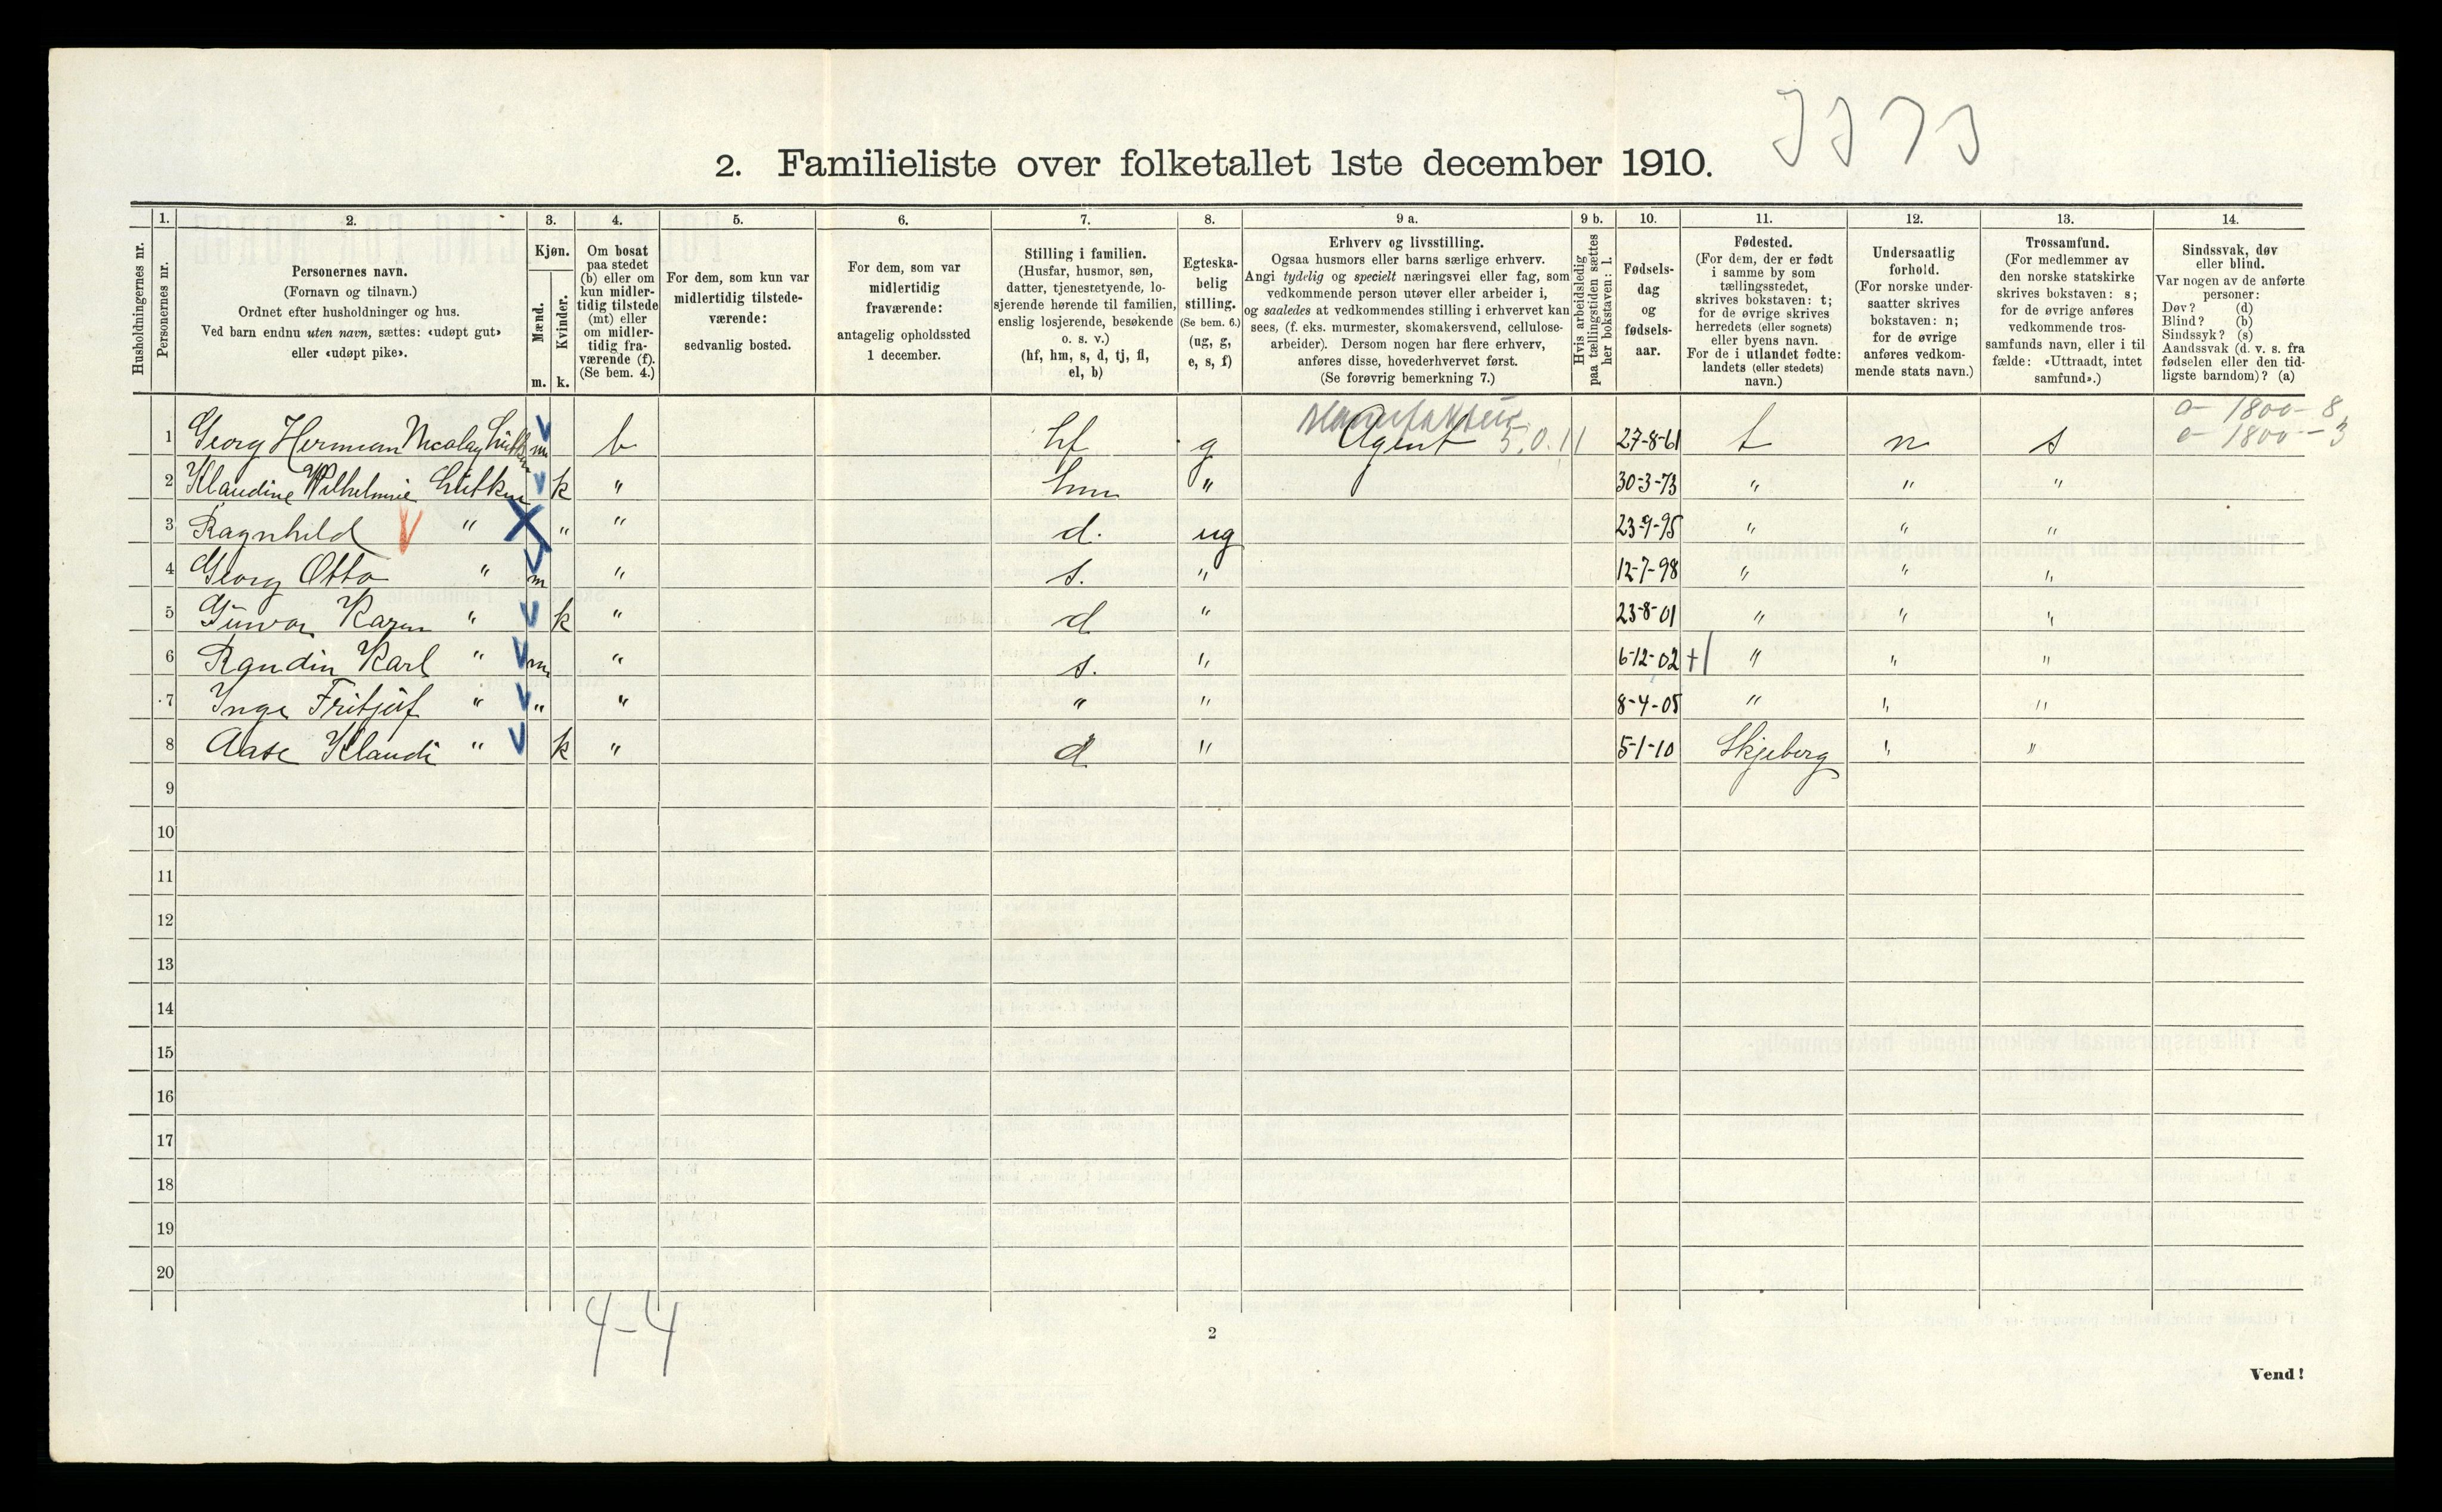 2. Familieliste over folketallet 1ste december 1910.
Husholdningernes nr.
1. Personernes nr.
2. Personernes navn.
(Fornavn og tilnavn.)
Ordnet efter husholdninger og hus.
Ved barn endnu uten navn, sættes: «udøpt gut»
eller «udøpt pike».
3. Kjøn.
Mænd. m.
Kvinder. k.
4. Om bosat
paa stedet
(b) eller om
kun midler-
tidig tilstede
(mt) eller
om midler-
tidig fra-
værende (f).
(Se bem. 4.)
5. For dem, som kun var
midlertidig tilstede-
værende:
sedvanlig bosted.
6. For dem, som var
midlertidig
fraværende:
antagelig opholdssted
1 december.
7. Stilling i familien.
(Husfar, husmor, søn,
datter, tjenestetyende, lo-
sjerende hørende til familien,
enslig losjerende, besøkende
o. s. v.)
(hf, hm, s, d, tj, fl,
el, b)
8. Egteska-
belig
stilling.
(Se bem. 6.)
(ug, g,
e, s, f)
9 a. Erhverv og livsstilling.
Ogsaa husmors eller barns særlige erhverv.
Angi tydelig og specielt næringsvei eller fag, som
vedkommende person utøver eller arbeider i,
og saaledes at vedkommendes stilling i erhvervet kan
sees, (f. eks. murmester, skomakersvend, cellulose-
arbeider). Dersom nogen har flere erhverv,
anføres disse, hovederhvervet først.
(Se forøvrig bemerkning 7.)
9 b. Hvis arbeidsledig
paa tællingstiden sættes
her bokstaven: l.
10. Fødsels-
dag
og
fødsels-
aar.
11. Fødested.
(For dem, der er født
i samme by som
tællingsstedet,
skrives bokstaven: t;
for de øvrige skrives
herredets (eller sognets)
eller byens navn.
For de i utlandet fødte:
landets (eller stedets)
navn.)
12. Undersaatlig
forhold.
(For norske under-
saatter skrives
bokstaven: n;
for de øvrige
anføres vedkom-
mende stats navn.)
13. Trossamfund.
(For medlemmer av
den norske statskirke
skrives bokstaven: s;
for de øvrige anføres
vedkommende tros-
samfunds navn, eller i til
fælde: «Uttraadt, intet
samfund».)
14. Sindssvak, døv
eller blind.
Var nogen av de anførte
personer:
Døv? (d)
Blind? (b)
Sindssyk? (s)
Aandssvak (d. v. s. fra
fødselen eller den tid-
ligste barndom)? (a)
Manufaktur
o - 1800 - 8
1 Georg Herman Nicolay m b hf g Agent 5.0.11 27-8-61 t n s o - 1800 - 3
2 Klaudine Wilhelmine k " hm " 30-3-73 " " "
3 Ragnhild " " " d. ug 23-9-95 " " "
4 Georg Otto " m " s. " 12-7-98 " " "
5 Gunvor Karen " k " d " 23-8-01 " " "
6 Randin Karl " m " s. " 6-12-02 +| " " "
7 Inge Fritjof " " " " " 8-4-05 " " "
8 Aase Klaudi " k " d " 5-1-10 Skjeberg " "
9
10
11
12
13
14
15
16
17
18
19
20
4-4
2
Vend!